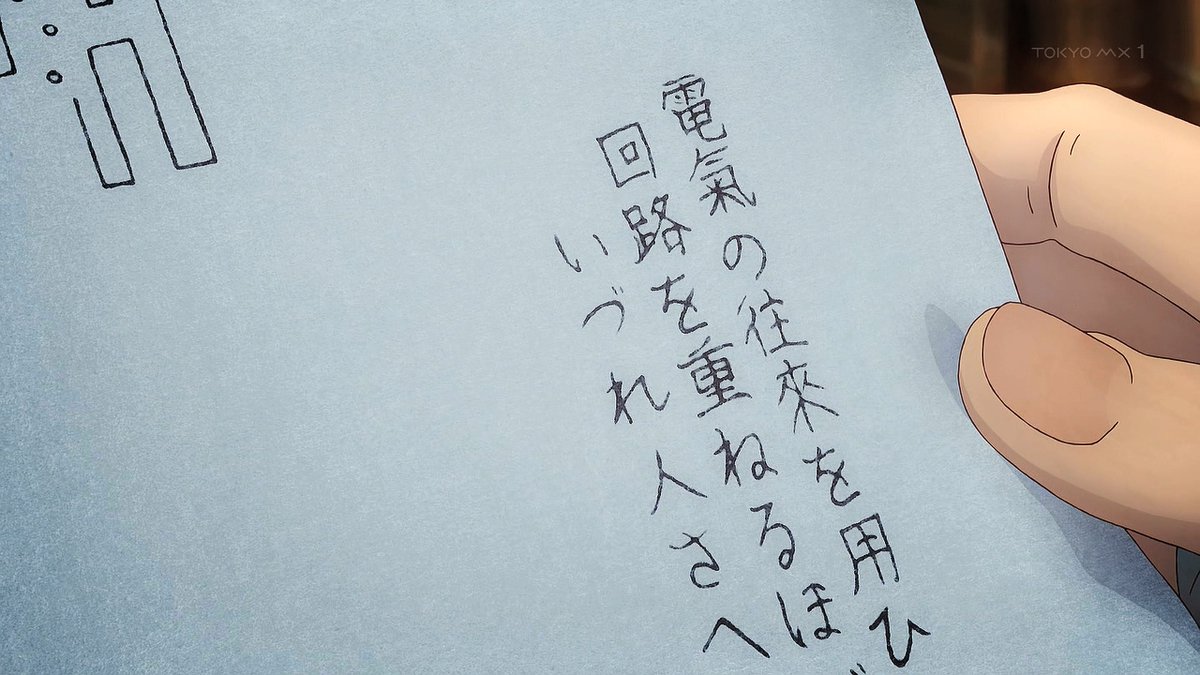 電氣の往來を用ひ
回路を重ねるほ
いづれ人さへ
TOKYO MX 1